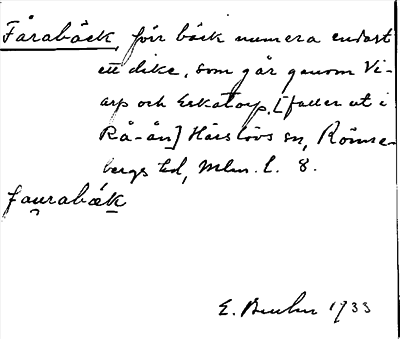 Fårabäck, förr bäck numera endast
ett dike, som går genom Vi-
arp och Eskatorp. [faller ut i
Rå-ån] Härslövs sn, Rönne-
bergs hd, Mlm. l. 8.
faurabäk
E. 1933